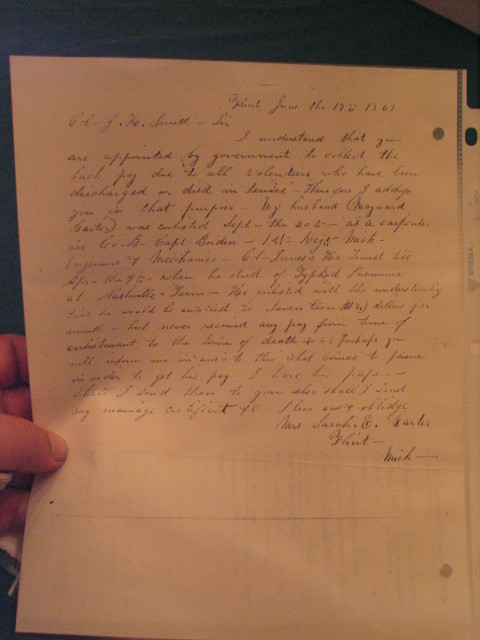 Flint, June the 17th 186
Col - J. Smith - Sir
I understand that you
are appointed by government to collect the
back pay due to all volunteers who have been
discharged or died in service - Therefore I address
you for that purpose - My husband (Maynard
Carter) was enlisted Sept - the 20th - as a
in Co - B - Capt - 1st - Regt - Mich -
Engineers & Mechanics - Col - He
Apr - the 9th - when he died of Pneumonia
at Nashville - Tenn - He enlisted with the understanding
that he would be entitled to Seventeen ($17) dollars per
month - but never received any pay from time of
enlistment to the time of death - Perhaps you
will inform me in answer to this what course to pursue
in order to get his pay I have his papers -
Shall I send them to you also shall I send
my marriage certificate &c - Pleas answ & oblidge
Mrs Sarah. E. Carter
Flint -
Mich -